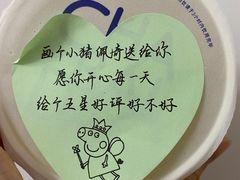 画个小猪佩奇送给你
愿你开心每一天
给个五星好评好不好